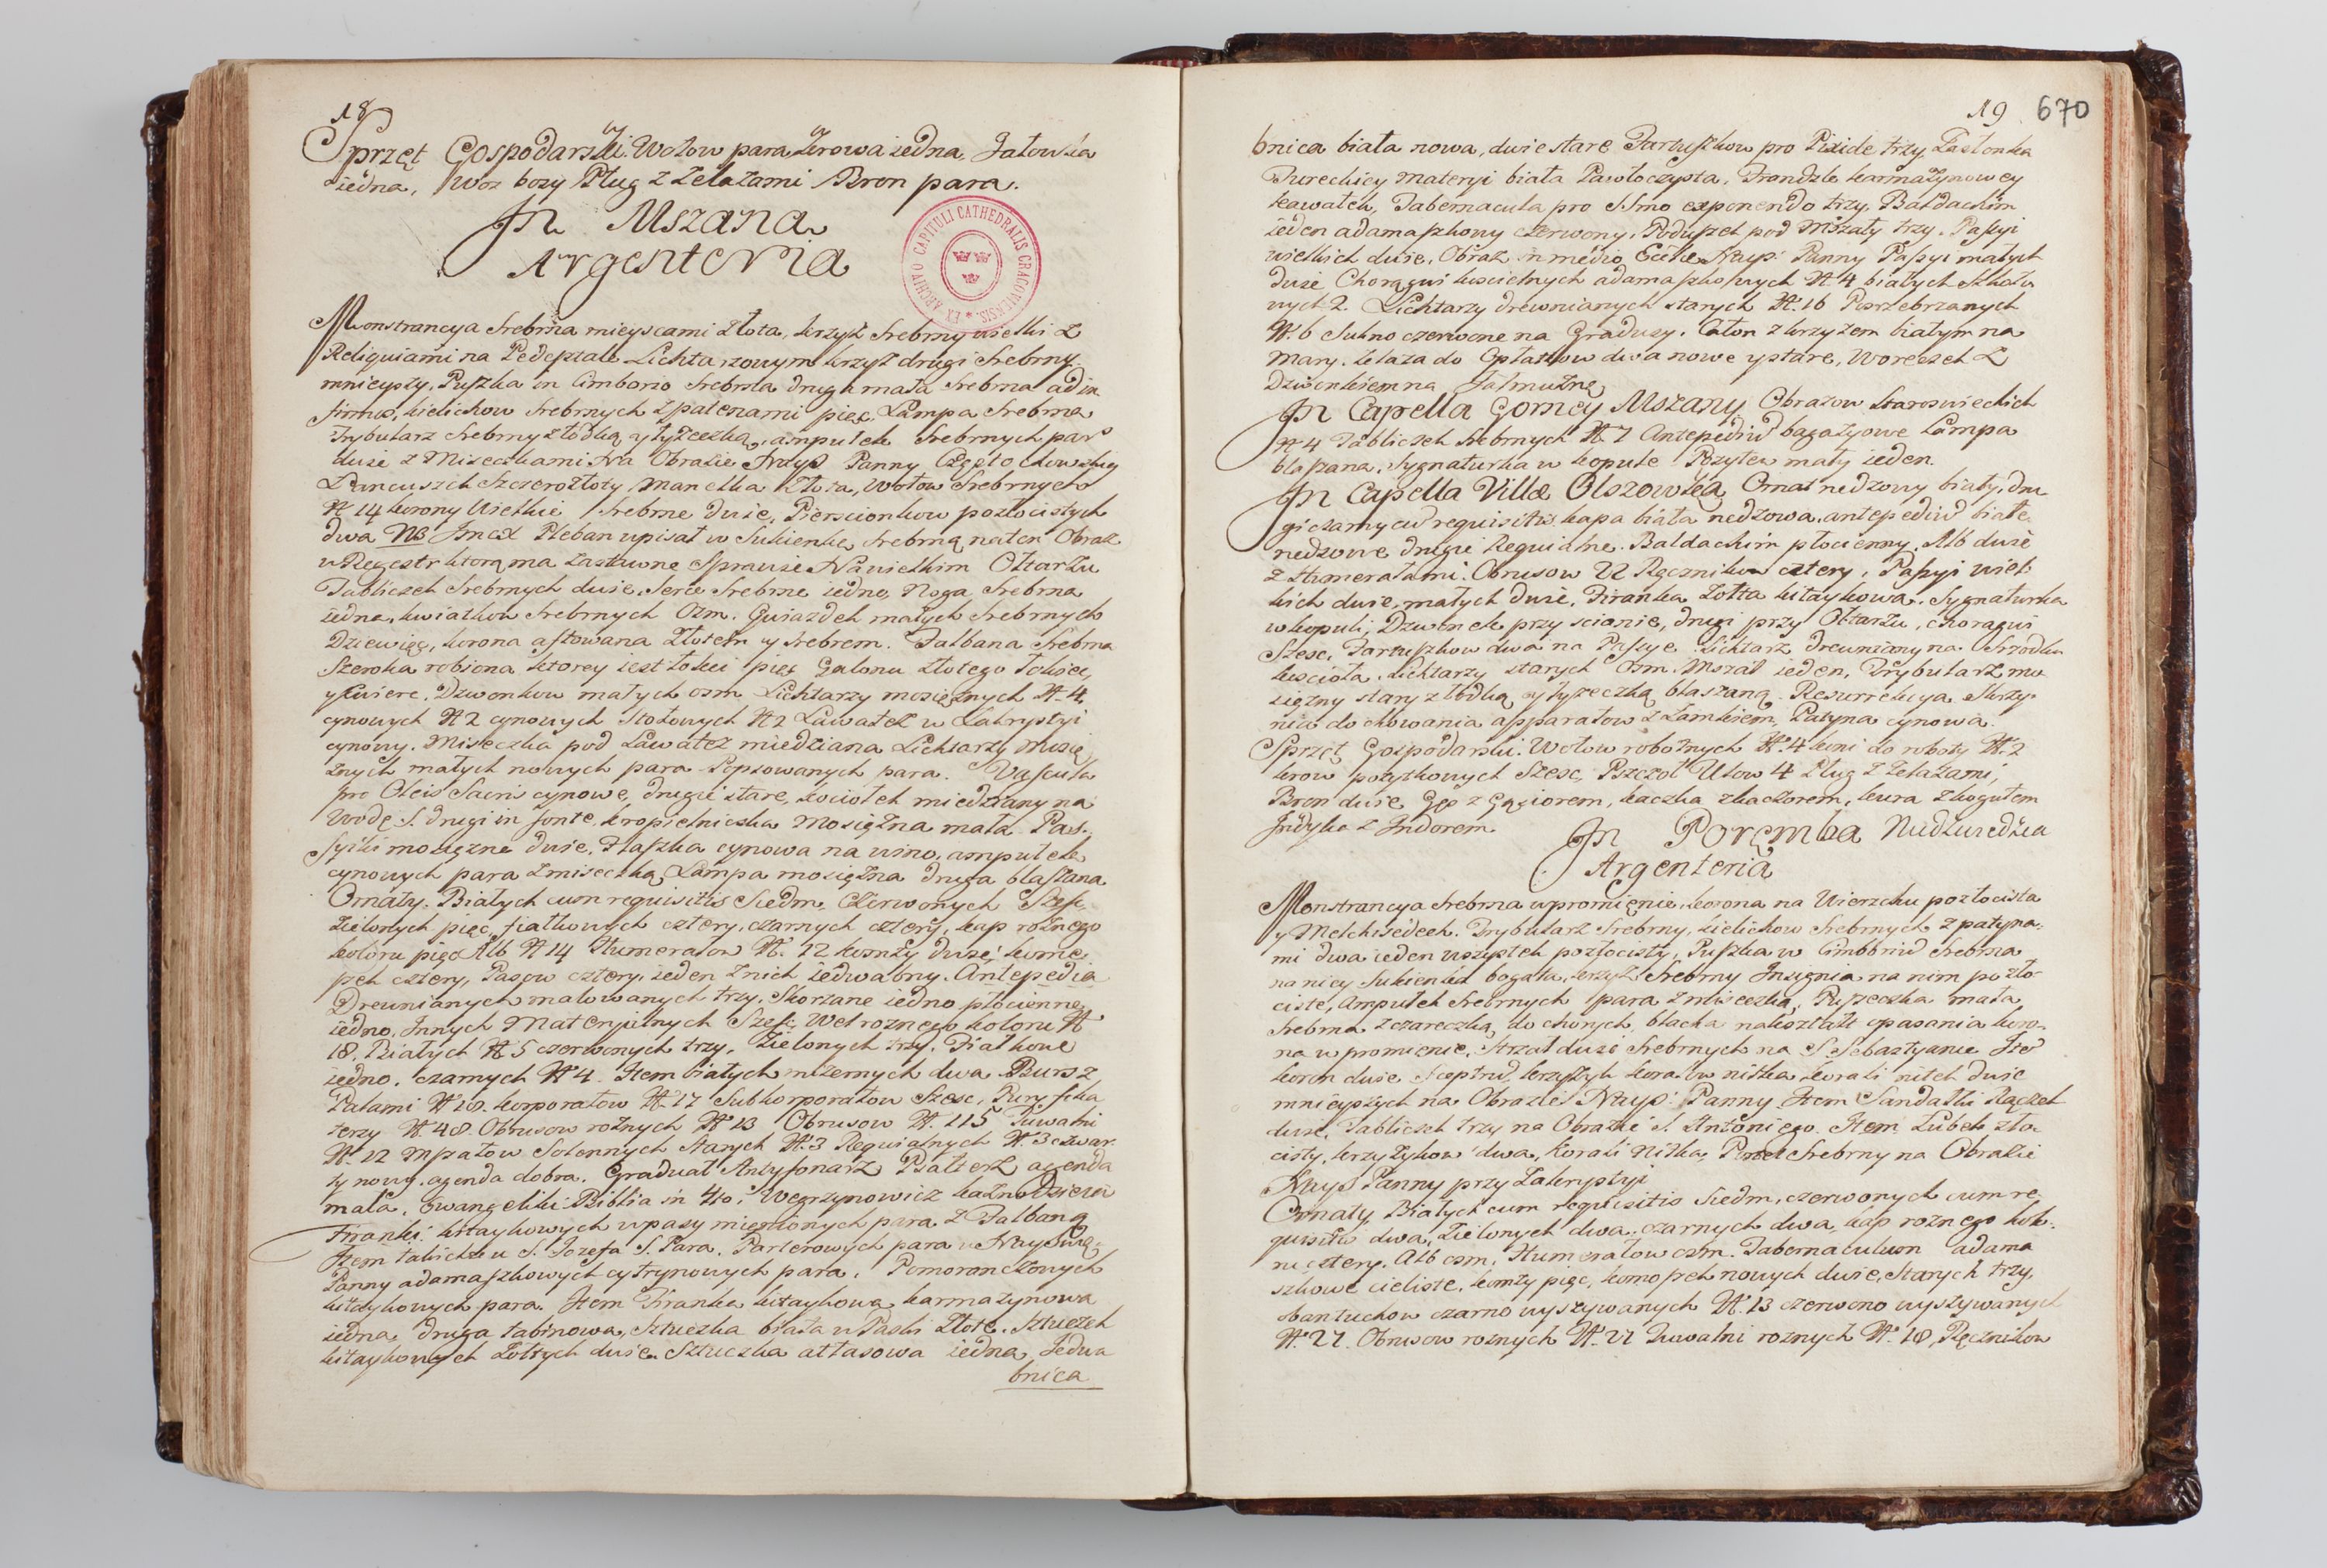 18
Sprzęt Gospodarski. Wołow para, krowa iedna, Jałowka
iedna, Woz bozy Pług z zelazami Bron para.
In Mszana
Argenteria
EX ARCHIVO CAPITULI CATHEDRALIS CRACOVIENSIS
Monstrancya Srebrna mieyscami złota, krzyż Srebrny wielki z
Reliquiami na Pedeptale Lichtarzowym krzyż drugi Srebrny
mnieyszy, Puszka in Cimborio Srebrna druga mała Srebrna ad in
firmos, kielichow Srebrnych z patenami pięc, Lampa Srebrna
Trybularz Srebrny z łodką y łyżeczką, ampułek Srebrnych par
dwie z Miseczkami Na Obrazie Nayś Panny Częstochowskiey
Łancuszek Szczerozłoty Manelka złota, Wotow Srebrnych
N 14 korony Wielkie Srebrne dwie, Pierscionkow pozłocistych
dwa NB Jmcx Pleban wpisał w Sukienkę Srebrną na ten Obraz
w Regestr ktorą ma zastawne Sprawie Na wielkim Ołtarzu
Tabliczek Srebrnych dwie, Serce Srebrne iedno, Noga Srebrna
iedna, kwiatkow Srebrnych Osm. Gwiazdek małych Srebrnych
Dziewięc, korona aftowana złotem y Srebrem. Falbana Srebrna
Szeroka robiona ktorey iest łokci pięc Galonu złotego łokiec
y cwierc. Dzwonkow małych osm Lichtarzy mosiężnych N 4.
cynowych N 2 cynowych Stołowych N 2 Lawaterz w Zakrystyi
cynowy. Miseczka pod Lawaterz miedziana Lichtarzy Mosię
żnych małych nowych para Popsowanych para. Vascula
pro Oleis Sacris cynowe, drugie stare, kociołek miedziany na
Wodę S. drugi in fonte, kropielniczka Mosiężna mała. Pas.
Syiki mosiężne dwie, Flaszka cynowa na wino, ampułek
cynowych para z miseczką, Lampa mosiężna druga blaszana
Ornaty. Białych cum requisitis Siedm, Czerwonych Szesc
Zielonych pięc, fiałkowych cztery, czarnych cztery, kap rożnego
koloru pięc Alb N 14 Humerałow N. 12 komży dwie, kome
żek cztery, Pasow cztery, ieden z nich iedwabny. Antepedia
Drewnianych malowanych trzy, Skorzane iedno płocienne
iedno, Innych Materyalnych Szesc, Wel rożnego koloru N
18. Białych N 5 czerwonych trzy, Zielonych trzy. Fiałkowe
iedno, czarnych N 4. Item białych mizernych dwa Burs z
Palami N 20. korporałow N 17 Subkorporałow Szesc, Puryfika
terzy N. 48. Obrusow rożnych N 23 Obrusow N. 115 Tuwalni
N. 12 Mszałow Solennych Starych N. 3 Requialnych N 3 czwar
ty nowy. agenda dobra. Graduał Antyfonarz Psałterz agenda
mała, Ewangeliki Biblia in 4to. Węgrzynowicz kaznodzieia
Firanki kitaykowych w pasy mienionych para z Falbaną
Item takichże u S. Jozefa S. Para. Parterowych para u Nayświę
Panny adamaszkowych cytrynowych para. Pomaronczowych
kitaykowych para. Item Firanka kitaykowa karmazynowa
iedna, druga tabinowa, Sztuczka biała w Paski złote. Sztuczek
kitaykowych żołtych dwie Sztuczka atłasowa iedna, Jedwa
bnica
19 670
bnica biała nowa, dwie stare Fartuszkow pro Pixide trzy, Zasłonka
Tureckiey materyi biała Pawłoczysta, Frandzle karmazynowey
kawałek, Tabernacula pro SSmo exponendo trzy, Baldachim
ieden adamaszkowy czerwony, Poduszek pod Mszały trzy, Pasyi
wielkich dwie, Obraz in medio Eccle Nayś: Panny Pasyi małych
dwie Chorągwi koscielnych adamaszkowych N 4 białych
wych 2. Lichtarzy drewnianych starych N. 16 Posrzebrzanych
N. 6 Sukno czerwone na Gradusy, Całon z krzyżem białym na
Mary. żelaza do Opłatkow dwa nowe y stare, Woreczek z
dzwonkiem na Jałmużnę
In Capella Gorney Mszany Obrazow Staroswieckich
N 4 Tabliczek Srebrnych N. 7 Antepediū bagazyowe Lampa
blaszana, Sygnaturka w kopule Pozytew mały ieden.
In Capella Villæ Olszowka Ornat nedzowy biały, dru
gi czarny cū requisitis kapa biała nedzowa, antepediū białe
nedzowe drugie Requialne. Baldachim płocienny, Alb dwie
z Humerałami. Obrusow 22 Ręcznikow cztery, Pasyi wiel
kich dwie, małych dwie, Firanka żołta kitaykowa. Sygnaturka
w kopuli, Dzwonek przy scianie, drugi przy Ołtarzu, choragwi
Szesc, Fartuszkow dwa na Pasye. Lichtarz drewniany na Srzodku
koscioła. Lichtarzy starych Osm. Mszał ieden, Trybularz mo
siężny stary z łodką y łyżeczką blaszaną. Resurrekcya Skrzy
nia do chowania apparatow z zamkiem, Patyna cynowa.
Sprzęt Gospodarski. Wołow robotnych N. 4 koni do roboty N. 2
krow pożytkowych Szesc, Pszczoł Ulow 4 Pług z żelazami,
Bron dwie Gęś z Gąsiorem, kaczka z kaczorem, kura z kogutem
Indyka z Indorem. In Poręmba Niedzwiedzia
Argenteria
Monstrancya Srebrna w promienie, korona na Wierzchu pozłocista
y Melchisedech. Trybularz Srebrny, kielichow Srebrnych z patyna
mi dwa ieden wszystek pozłocisty, Puszka w Cimboriū Srebrna
na niey Sukienka bogata, krzyż Srebrny Insignia na nim pozło
ciste, Ampułek Srebrnych para z miseczką, Puszeczka mała
Srebrna z czareczką do chorych, blacha nakształt opasania koro
na w promienie, Strzał dwie Srebrnych na S. Sebastyanie Ite
koron dwie Sceptrū, krzyżyk koralow nitka korali nitek dwie
mnieyszych na Obrazie Nayś: Panny. Item Sandałki Rączek
dwie, Tabliczek trzy na Obrazie S. Antoniego. Item Lubek zło
cisty, krzyżykow dwa, korali nitka, Srebrny na Obrazie
Nayś Panny przy Zakrystyi
Ornaty Białych cum requisitis Siedm, czerwonych cum re
quisitis dwa, Zielonych dwa, czarnych dwa, kap rożnego kolo
ru cztery. Alb osm, Humerałow osm. Tabernaculum adama
szkowe cieliste, komży pięc, komożek nowych dwie, starych trzy,
bantuchow czarno wyszywanych N. 13 czerwono wyszywanych
N. 27. Obrusow rożnych N. 21 Tuwalni rożnych N. 18, Ręcznikow